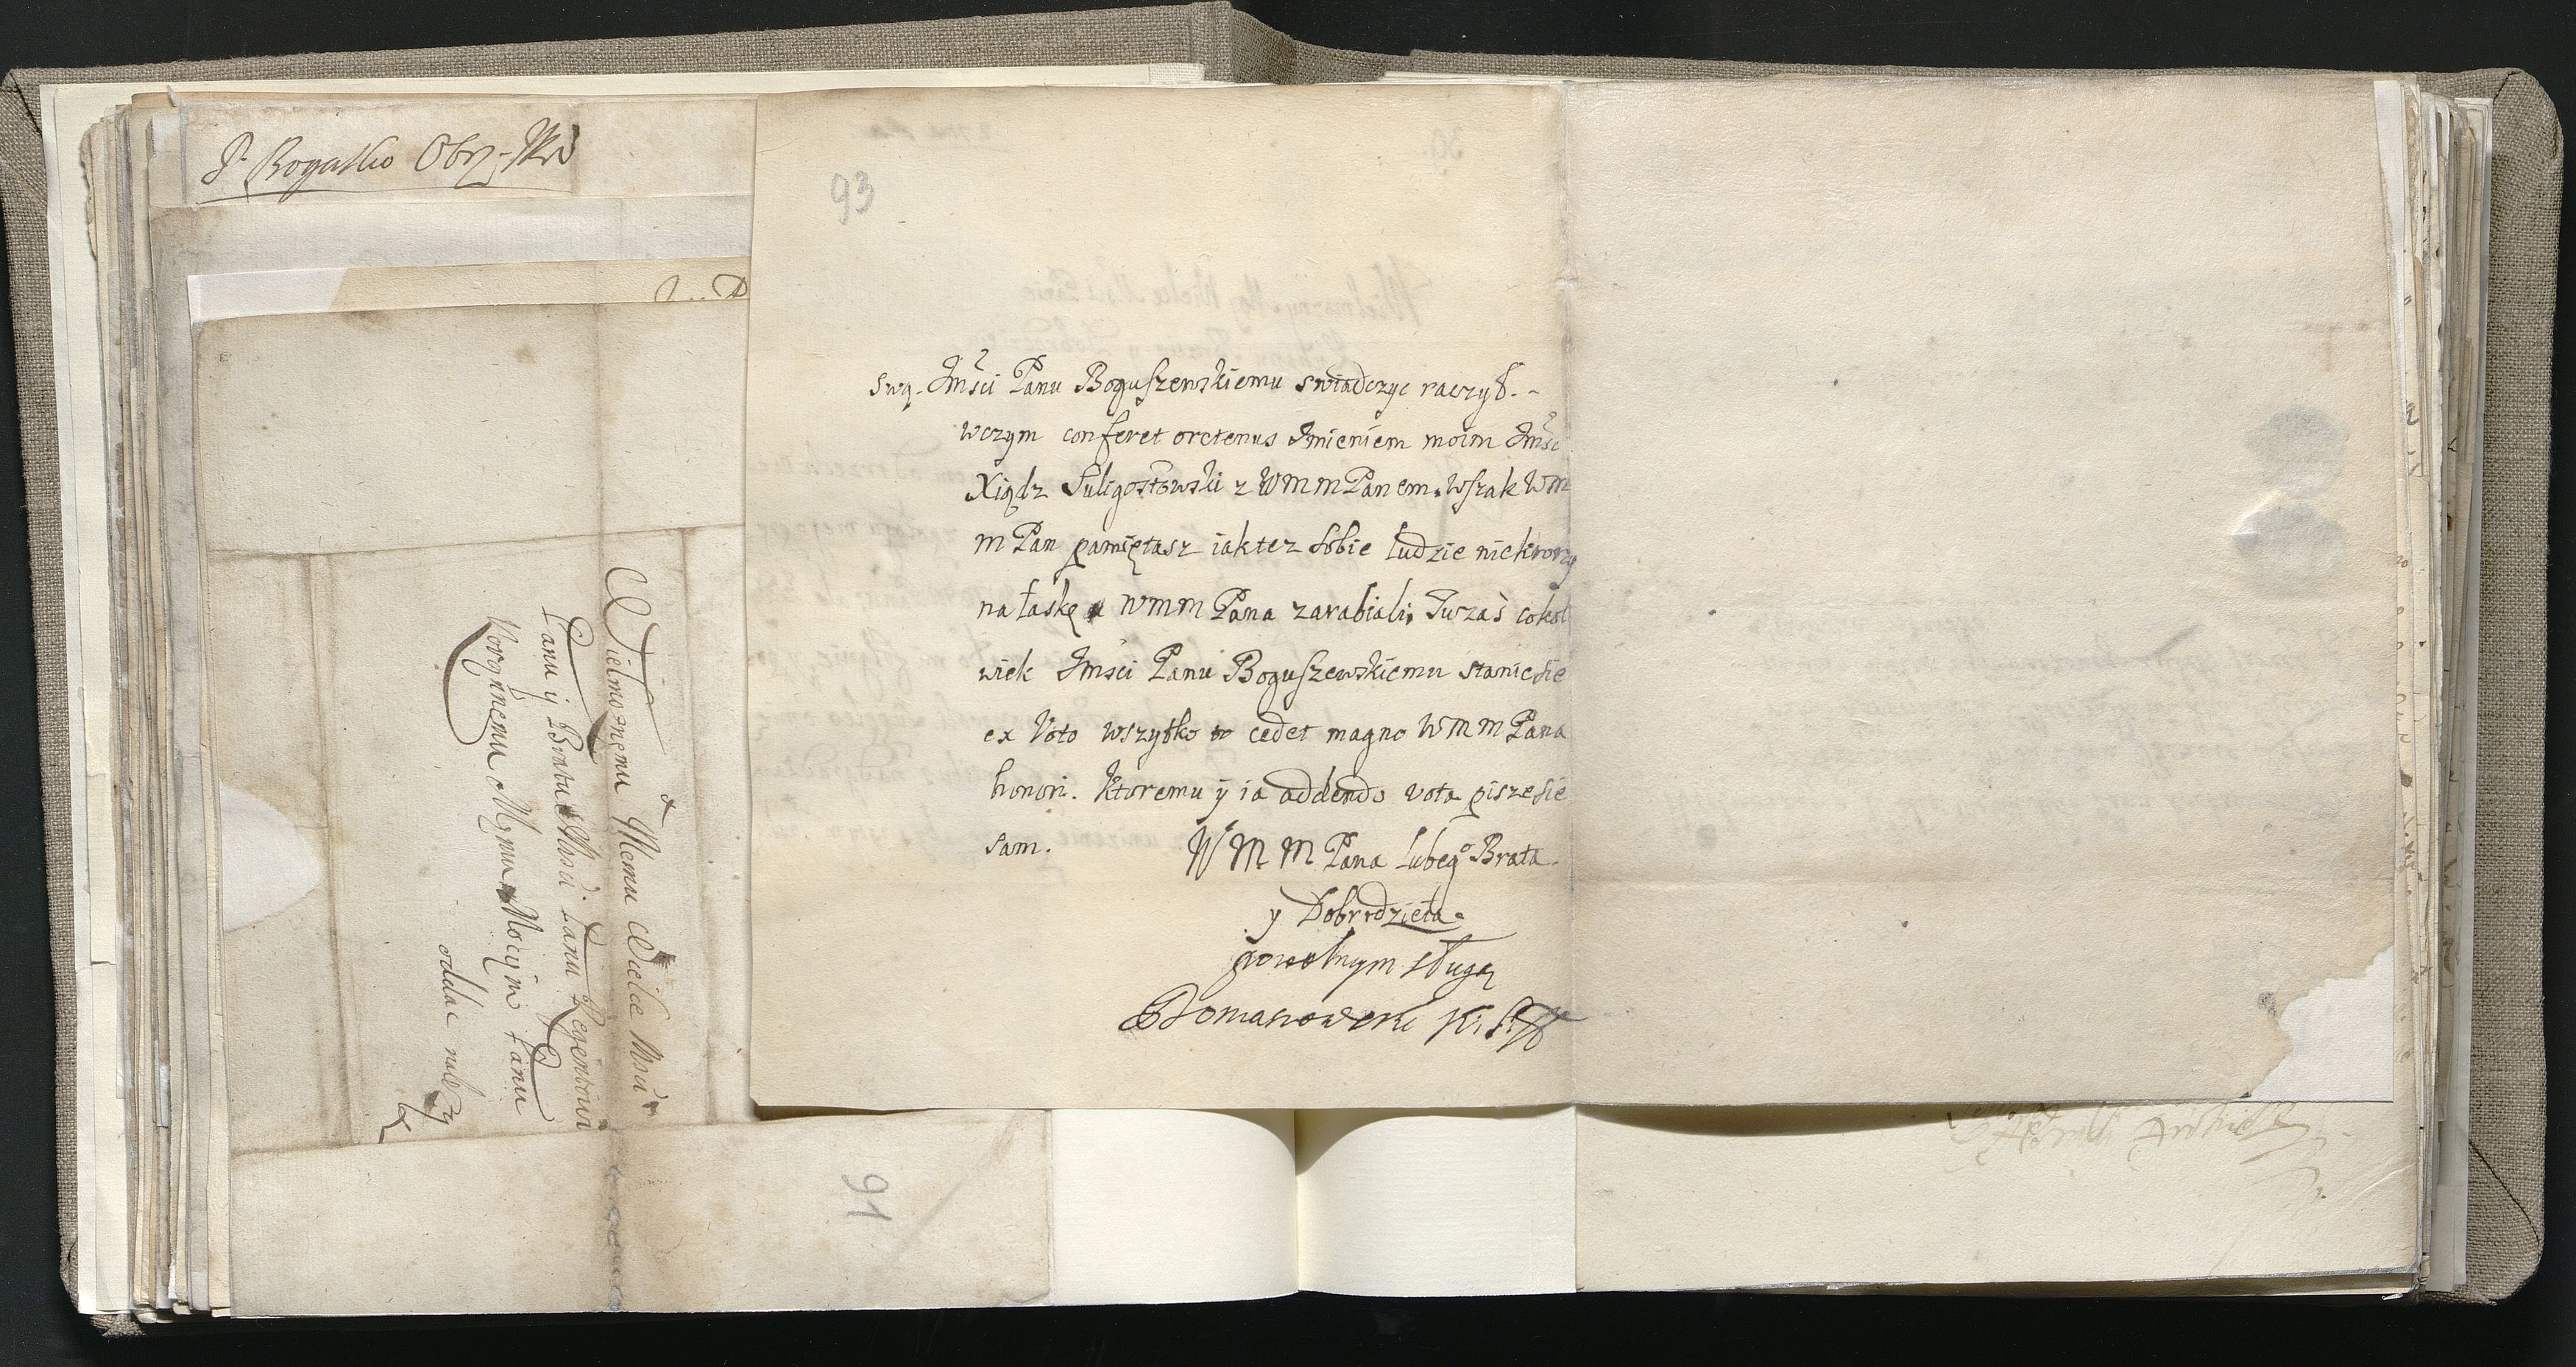 P. Rogatko
93
swą. Jmści Panu Boguszewskiemu swiadczyc raczył. -
wczym conferet orctenus Imieniem moim Jmśc
Xiądz Suligostowski z WMMPanem. Wszak WM
M Pan pamiętasz iaktez sobie ludzie niektorzy
na łaskę WMM Pana zarabiali. Juzaś cokol
wiek Jmści Panu Boguszewskiemu staniesie
ex Voto wszytko to cedet magno WMM Pana
honori. Ktoremu y ia addendo vota piszesie
sam.
WMM Pana lubego Brata
y Dobrodzieia.
powolnym sługą
Domanowski
Wielmoznemu Memu Wielce Mści
Panu y Bratu Mści Panu Regentowi
Koronnemu Memu Mocijm Panu
oddac nalezy
91